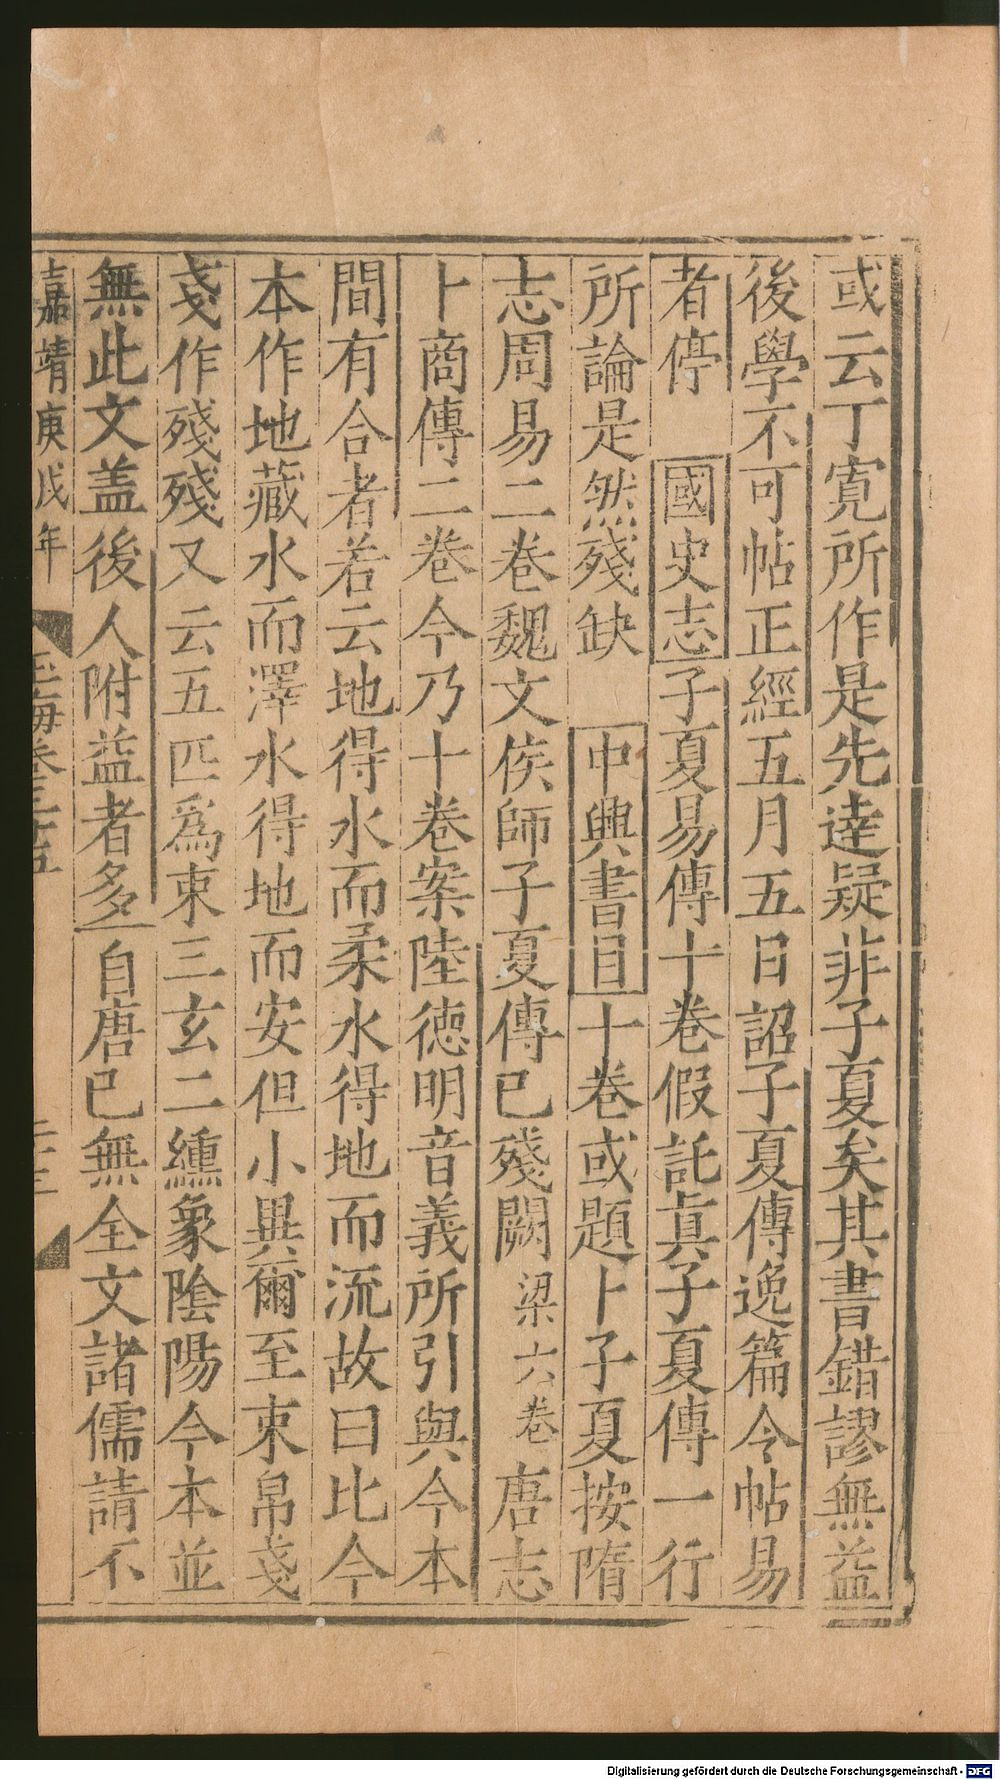 或云丁寬所作是先達疑非子夏矣其書錯謬無益
後學不可帖正經五月五日詔子夏傳逸篇令帖易
者停 國史志子夏易傳十卷假託眞子夏傳一行
所論是然殘缺 中興書目十卷或題卜子夏按隋
志周易二卷魏文侯師子夏傳已殘闕梁六卷唐志
卜商傳二卷今乃十卷案陸德明音義所引與今本
間有合者若云地得水而柔水得地而流故曰比今
本作地藏水而澤水得地而安但小異爾至束帛戔
戔作殘殘又云五匹爲束三玄二纁象陰陽今本並
無此文盖後人附益者多自唐已無全文諸儒請不
嘉靖庚戊年 玉海卷三十五 二十三
Digitalisierung gefördert durch die Deutsche Forschungsgemeinschaft - DFG